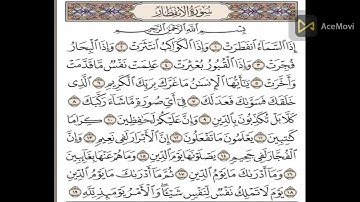 سورة الانفطار
AceMovi
بسم الله الرحمن الرحيم
إذا السماء انفطرت ١ وإذا الكواكب انتثرت ٢ وإذا البحار
فجرت ٣ وإذا القبور بعثرت ٤ علمت نفس ما قدمت
وأخرت ٥ يا أيها الإنسان ما غرك بربك الكريم ٦ الذي
خلقك فسواك فعدلك ٧ في أي صورة ما شاء ركبك ٨
كلا بل تكذبون بالدين ٩ وإن عليكم لحافظين ١٠ كراما
كاتبين ١١ يعلمون ما تفعلون ١٢ إن الأبرار لفي نعيم ١٣ وإن
الفجار لفي جحيم ١٤ يصلونها يوم الدين ١٥ وما هم عنها بغائبين
١٦ وما أدراك ما يوم الدين ١٧ ثم ما أدراك ما يوم الدين
١٨ يوم لا تملك نفس لنفس شيئا والأمر يومئذ لله ١٩